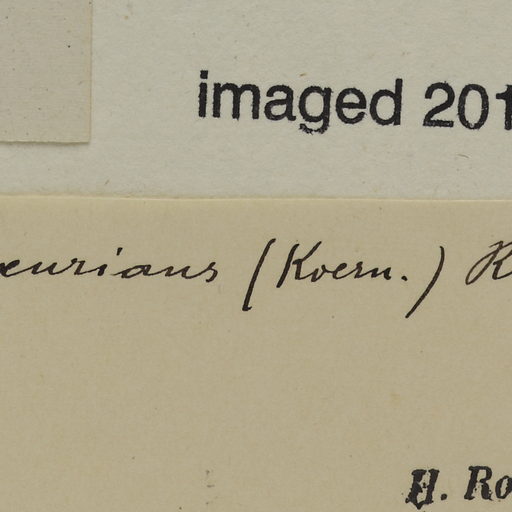 imaged 201
eurians (Koern.) R
H. Ro